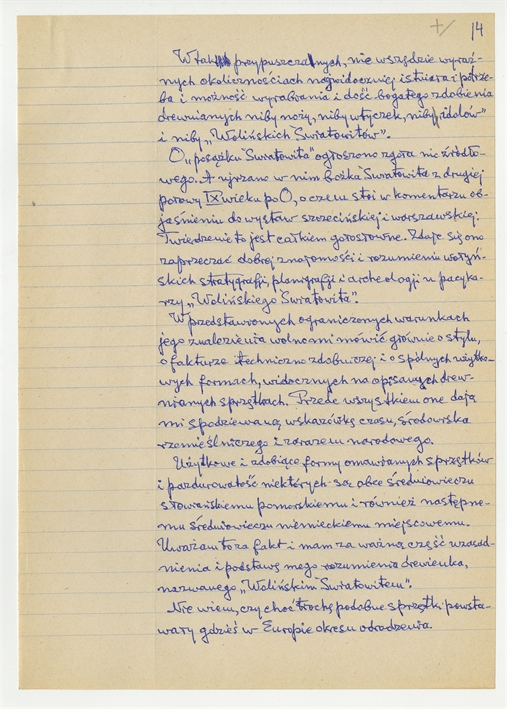 +/ 14
W tak przypuszczalnych, nie wszędzie wyraź-
nych okolicznościach najwidoczniej istniała i potrze-
ba i możność wyrabiania i dość bogatego zdobienia
drewnianych niby noży, niby wtyczek, niby „idolów”
i niby „Wolińskich Światowitów”.
O „posążku Światowita” ogłoszono zgoła nic źródło-
wego. A ujrzano w nim bożka Światowita z drugiej
połowy IX wieku po O, o czem stoi w komentarzu ob-
jaśnieniu do wystaw szczecińskiej i warszawskiej.
Twierdzenie to jest całkiem gołosłowne. Zdaje się ono
zaprzeczać dobrej znajomości i rozumieniu wolyń-
skich stratygrafji, planigrafji i archeologji u pacyka-
rzy „Wolińskiego Światowita”.
W przedstawionych ograniczonych warunkach
jego znalezienia wolno mi mówić głównie o stylu,
o fakturze techniczno zdobniczej i o spólnych użytko-
wych formach, widocznych na opisanych drew-
nianych sprzętkach. Przede wszystkiem one dają
mi spodziewaną wskazówkę czasu, środowiska
rzemieślniczego i zarazem narodowego.
Użytkowe i zdobiące formy omawianych sprzętków
i pazdurowatość niektórych są obce średniowieczu
słowiańskiemu pomorskiemu i również następne-
mu średniowieczu niemieckiemu miejscowemu.
Uważam to za fakt i mam za ważną część uzasad-
nienia i podstawę mego rozumienia drewienka,
nazwanego „Wolińskim Światowitem”.
Nie wiem, czy choć trochę podobne sprzętki powsta-
wały gdzieś w Europie okresu odrodzenia.